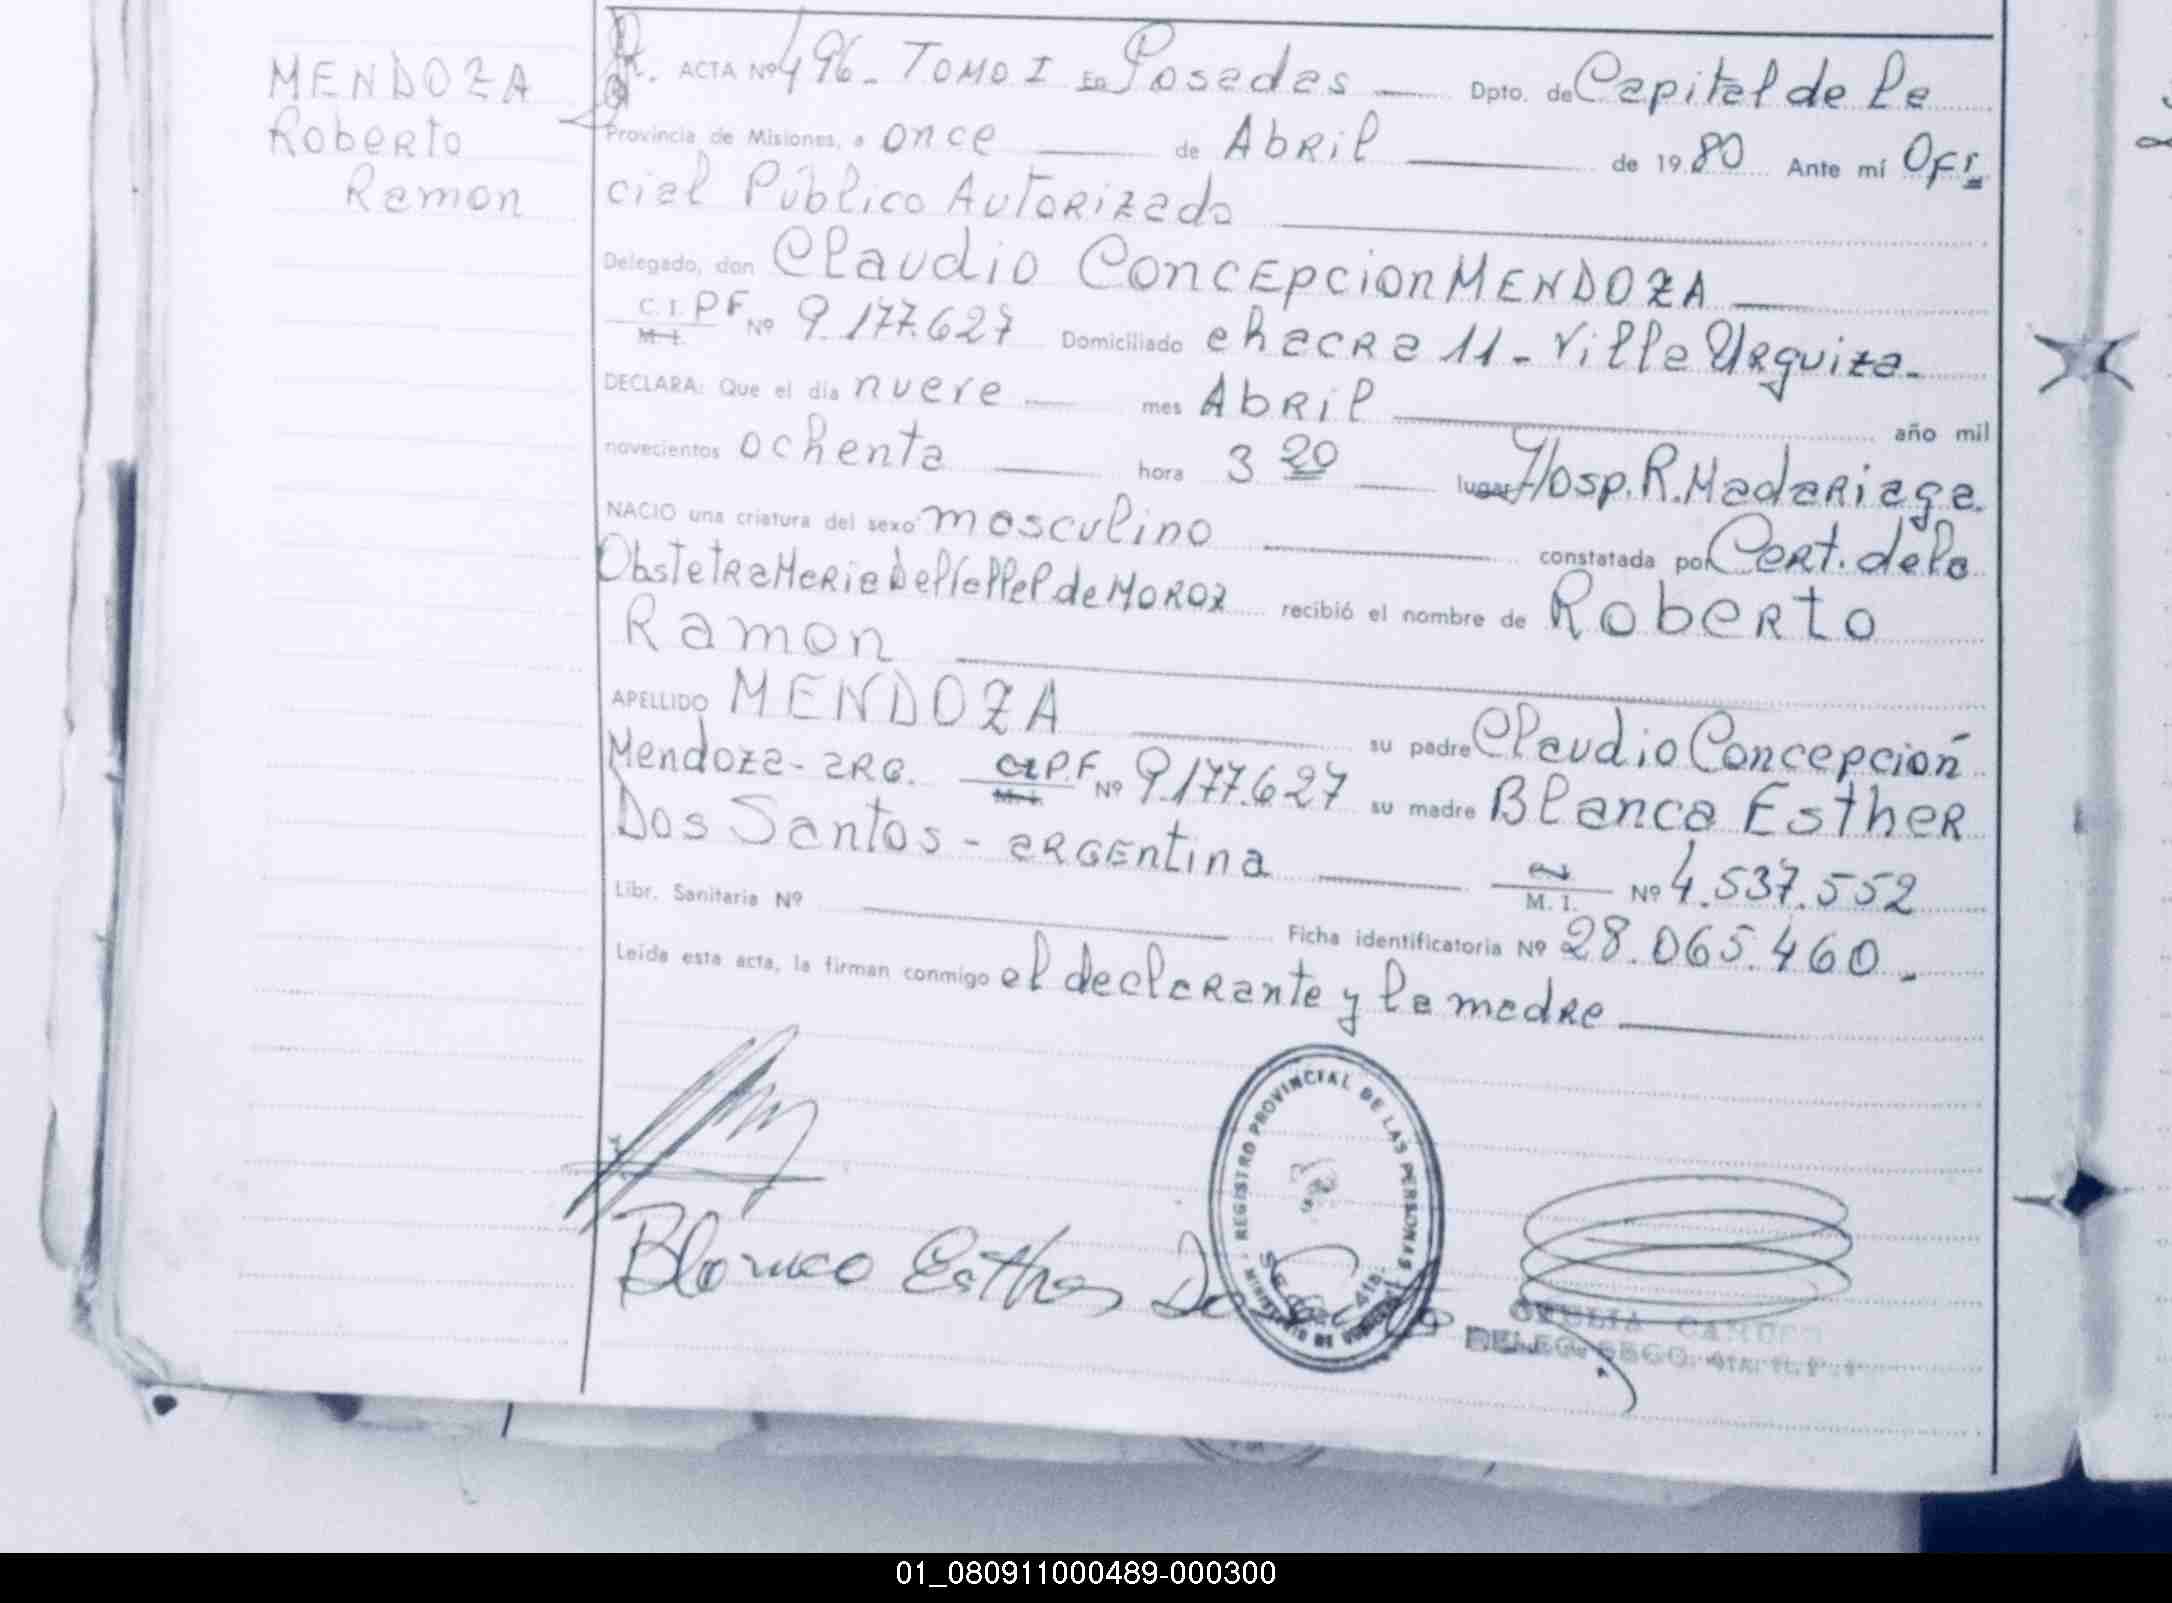 MENDOZA
Roberto
Ramon
ACTA Nº 496 - TOMO I En Posadas Dpto. de Capital de la
Provincia de Misiones, a once de Abril de 1980 Ante mí Ofi
cial Público Autorizado
Delegado, don Claudio Concepcion MENDOZA
C. I. PF Nº 9.177.627 Domiciliado chacra 11 - Villa Urquiza -
M. I.
DECLARA: Que el día nueve mes Abril año mil
novecientos ochenta hora 3 20 lugar Hosp. R. Madariaga.
NACIO una criatura del sexo masculino constatada por Cert. de la
Obstetra Maria Del de MOROZ recibió el nombre de Roberto
Ramon
APELLIDO MENDOZA su padre Claudio Concepción
Mendoza - arg. CI P.F. Nº 9.177.627 su madre Blanca Esther
M. I.
Dos Santos - argentina Nº 4.537.552
M. I.
Libr. Sanitaria Nº Ficha identificatoria Nº 28.065.460.-
Leída esta acta, la firman conmigo el declarante y la madre
REGISTRO PROVINCIAL DE LAS PERSONAS
MINISTERIO DE GOBIERNO
Blanca Esther Dos
01_080911000489-000300